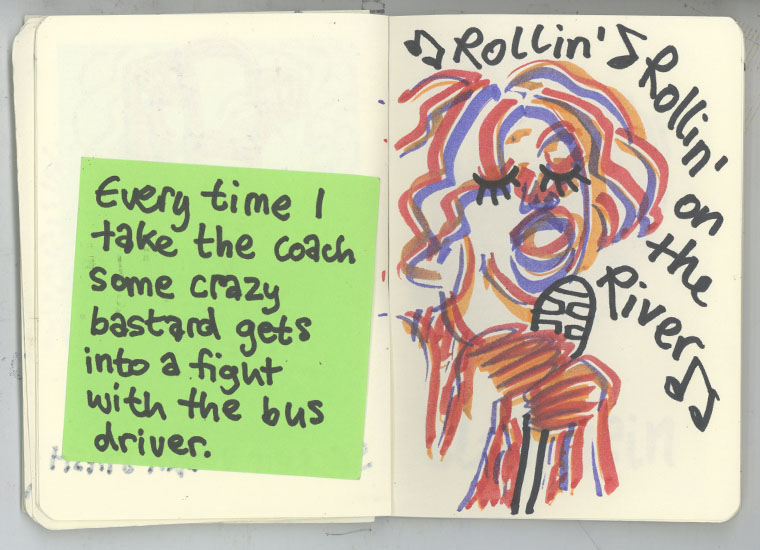 Every time I
take the coach
some crazy
bastard gets
into a fight
with the bus
driver.
♫ Rollin' ♫ Rollin' on the River ♫